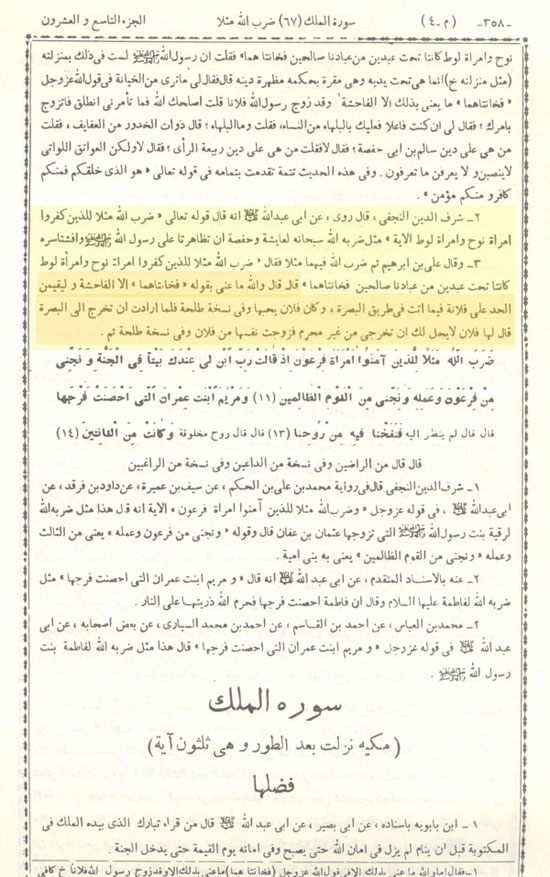 -٣٥٨- (م-٤) سورة الملك (٦٧) ضرب الله مثلا الجزء التاسع و العشرون
نوح وامرأة لوط كانتا تحت عبدين من عبادنا صالحين فخانتاهما» فقلت ان رسول الله ﷺ لست فى ذلك بمنزلته
(مثل منزلته خ) انما هى تحت يديه وهى مقرة بحكمه مظهرة دينه قال فقال لى ماترى من الخيانة فى قول الله عزوجل
« فخانتاهما » ما يعنى بذلك الا الفاحشة ١ وقد زوج رسول الله فلانا قلت اصلحك الله فما تأمرنى انطلق فاتزوج
بامرك ؟ فقال لى ان كنت فاعلا فعليك بالبلهاء من النساء، فقلت وما البلهاء ؟ قال ذوات الخدور من العفايف، فقلت
من هى على دين سالم بن ابى حفصة ؟ فقال لا فقلت من هى على دين ربيعة الرأى؟ قال لا ولكن العواتق اللواتى
لاينصبن و لا يعرفن ما تعرفون . وفى هذه الحديث تتمة تقدمت بتمامه فى قوله تعالى « هو الذى خلقكم فمنكم
كافرو منكم مؤمن » .
٢- شرف الدين النجفى، قال روى، عن ابى عبدالله انه قال قوله تعالى « ضرب الله مثلا للذين كفروا
امرأة نوح وامرأة لوط الاية » مثل ضربه الله سبحانه لعايشة وحفصة ان تظاهرتا على رسول الله ﷺ وافشتا سره
٣- وقال على بن ابرهيم ثم ضرب الله فيهما مثلا فقال « ضرب الله مثلا للذين كفروا امرأة نوح وامرأة لوط
كانتا تحت عبدين من عبادنا صالحين فخانتاهما » قال قال والله ما عنى بقوله « فخانتاهما » الا الفاحشة و ليقيمن
الحد على فلانة فيما اتت فى طريق البصرة ، وكان فلان يحبها وفى نسخة طلحة فلما ارادت ان تخرج الى البصرة
قال لها فلان لايحل لك ان تخرجى من غير محرم فزوجت نفسها من فلان وفى نسخة طلحة ثم .
ضَرَبَ اللّٰهُ مَثَلًا لِلَّذينَ آمَنُوا امْرَأَةَ فِرْعَوْنَ اِذْ قالَتْ رَبِّ ابْنِ لى عِنْدَكَ بَيْتاً فِى الْجَنَّةِ وَ نَجِّنى
مِنْ فِرْعَوْنَ وَعَمَلِهِ وَنَجِّنى مِنَ الْقَوْمِ الظّالِمينَ (١١) وَ مَرْيَمَ ابْنَتَ عِمْرانَ الَّتى اَحْصَنَتْ فَرْجَها
قال قال لم ينظر اليه فَنَفَخْنا فيهِ مِنْ رُوحِنا (١٣) قال قال روح مخلوقة وَ كانَتْ مِنَ الْقانِتينَ (١٤)
قال قال من الراضين وفى نسخة من الداعين وفى نسخة من الراغبين
١- شرف الدين النجفى قال فى رواية محمد بن على بن الحكم ، عن سيف بن عميرة، عن داود بن فرقد، عن
ابى عبدالله ، فى قوله عزوجل « وضرب الله مثلا للذين آمنوا امرأة فرعون » الاية انه قال هذا مثل ضربه الله
لرقية بنت رسول الله ﷺ التى تزوجها عثمان بن عفان قال وقوله « ونجنى من فرعون وعمله » يعنى من الثالث
وعمله « ونجنى من القوم الظالمين » يعنى به بنى امية .
٢- عنه بالاسناد المتقدم ، عن ابى عبد الله انه قال « و مريم ابنت عمران التى احصنت فرجها » مثل
ضربه الله لفاطمة عليها السلام وقال ان فاطمة احصنت فرجها فحرم الله ذريتها على النار .
٢- محمد بن العباس، عن احمد بن القاسم ، عن احمد بن محمد السيارى، عن بعض اصحابه ، عن ابى
عبد الله فى قوله عزوجل « و مريم ابنت عمران التى احصنت فرجها » قال هذا مثل ضربه الله لفاطمة بنت
رسول الله ﷺ .
سوره الملك
( مكيه نزلت بعد الطور و هى ثلثون آية )
فضلها
١- ابن بابويه باسناده ، عن ابى بصير ، عن ابى عبد الله قال من قراء تبارك الذى بيده الملك فى
المكتوبة قبل ان ينام لم يزل فى امان الله حتى يصبح وفى امانه يوم القيمة حتى يدخل الجنة